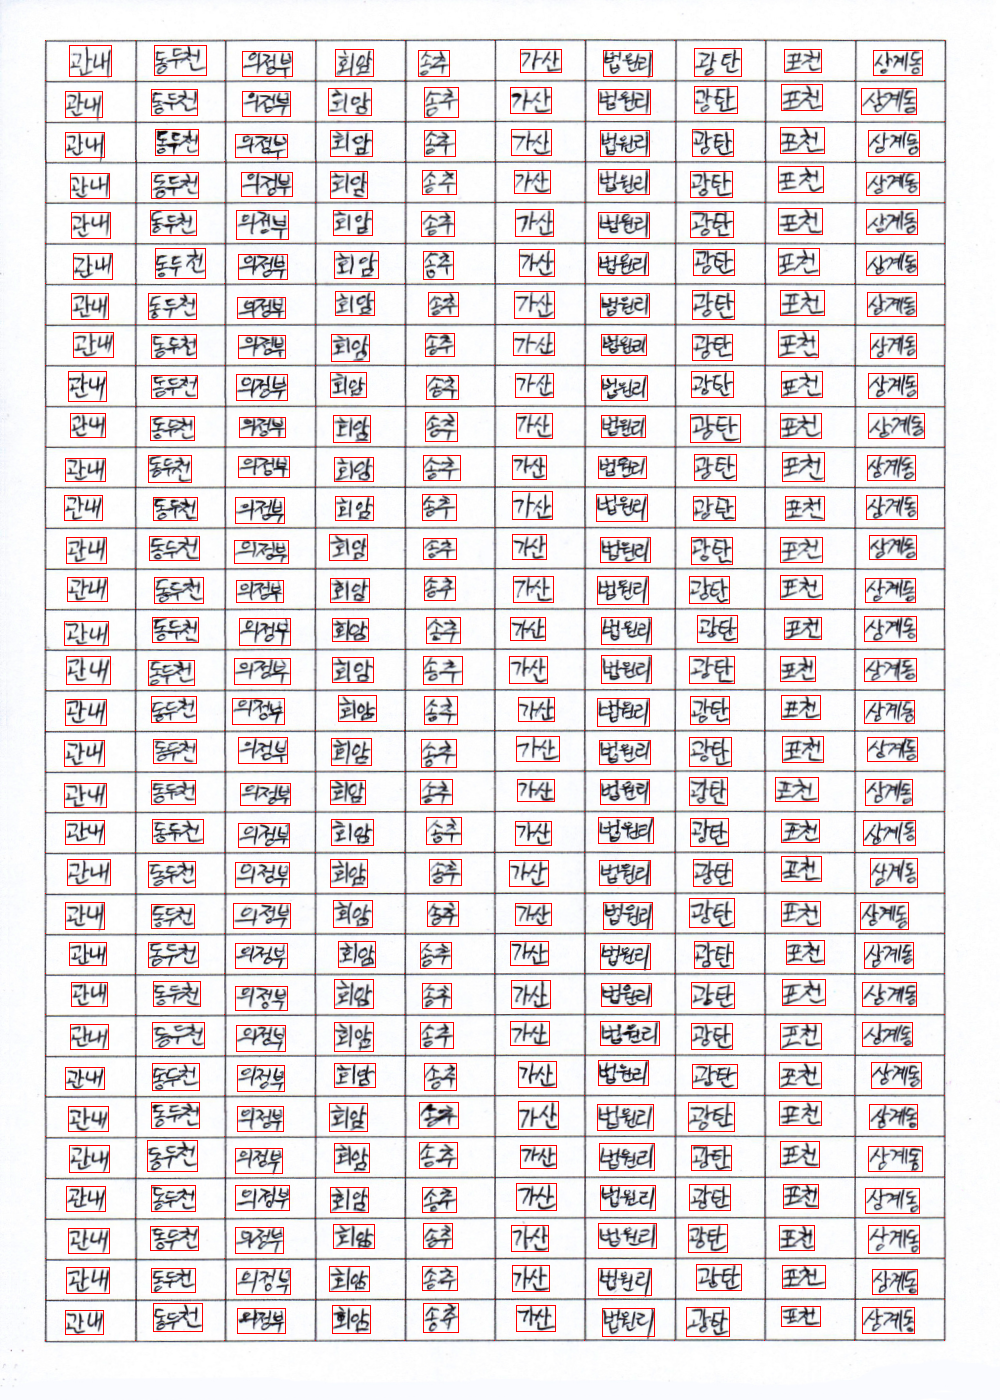 관내 동두천 의정부 회암 송추 가산 법원리 광탄 포천 상계동
관내 동두천 의정부 회암 송추 가산 법원리 광탄 포천 상계동
관내 동두천 의정부 회암 송추 가산 법원리 광탄 포천 상계동
관내 동두천 의정부 회암 송추 가산 법원리 광탄 포천 상계동
관내 동두천 의정부 회암 송추 가산 법원리 광탄 포천 상계동
관내 동두천 의정부 회암 송추 가산 법원리 광탄 포천 상계동
관내 동두천 의정부 회암 송추 가산 법원리 광탄 포천 상계동
관내 동두천 의정부 회암 송추 가산 법원리 광탄 포천 상계동
관내 동두천 의정부 회암 송추 가산 법원리 광탄 포천 상계동
관내 동두천 의정부 회암 송추 가산 법원리 광탄 포천 상계동
관내 동두천 의정부 회암 송추 가산 법원리 광탄 포천 상계동
관내 동두천 의정부 회암 송추 가산 법원리 광탄 포천 상계동
관내 동두천 의정부 회암 송추 가산 법원리 광탄 포천 상계동
관내 동두천 의정부 회암 송추 가산 법원리 광탄 포천 상계동
관내 동두천 의정부 회암 송추 가산 법원리 광탄 포천 상계동
관내 동두천 의정부 회암 송추 가산 법원리 광탄 포천 상계동
관내 동두천 의정부 회암 송추 가산 법원리 광탄 포천 상계동
관내 동두천 의정부 회암 송추 가산 법원리 광탄 포천 상계동
관내 동두천 의정부 회암 송추 가산 법원리 광탄 포천 상계동
관내 동두천 의정부 회암 송추 가산 법원리 광탄 포천 상계동
관내 동두천 의정부 회암 송추 가산 법원리 광탄 포천 상계동
관내 동두천 의정부 회암 송추 가산 법원리 광탄 포천 상계동
관내 동두천 의정부 회암 송추 가산 법원리 광탄 포천 상계동
관내 동두천 의정부 회암 송추 가산 법원리 광탄 포천 상계동
관내 동두천 의정부 회암 송추 가산 법원리 광탄 포천 상계동
관내 동두천 의정부 회암 송추 가산 법원리 광탄 포천 상계동
관내 동두천 의정부 회암 송추 가산 법원리 광탄 포천 상계동
관내 동두천 의정부 회암 송추 가산 법원리 광탄 포천 상계동
관내 동두천 의정부 회암 송추 가산 법원리 광탄 포천 상계동
관내 동두천 의정부 회암 송추 가산 법원리 광탄 포천 상계동
관내 동두천 의정부 회암 송추 가산 법원리 광탄 포천 상계동
관내 동두천 의정부 회암 송추 가산 법원리 광탄 포천 상계동